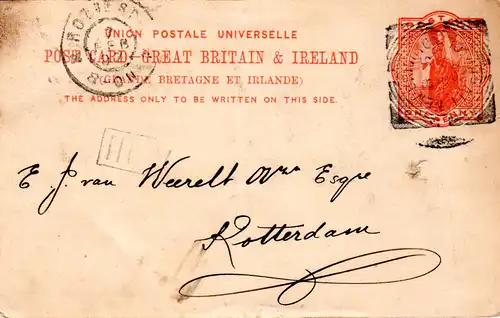 UNION POSTALE UNIVERSELLE
POST CARD–GREAT BRITAIN & IRELAND
(GRANDE BRETAGNE ET IRLANDE)
THE ADDRESS ONLY TO BE WRITTEN ON THIS SIDE.
E. J. van Weerelt Esqre
Rotterdam